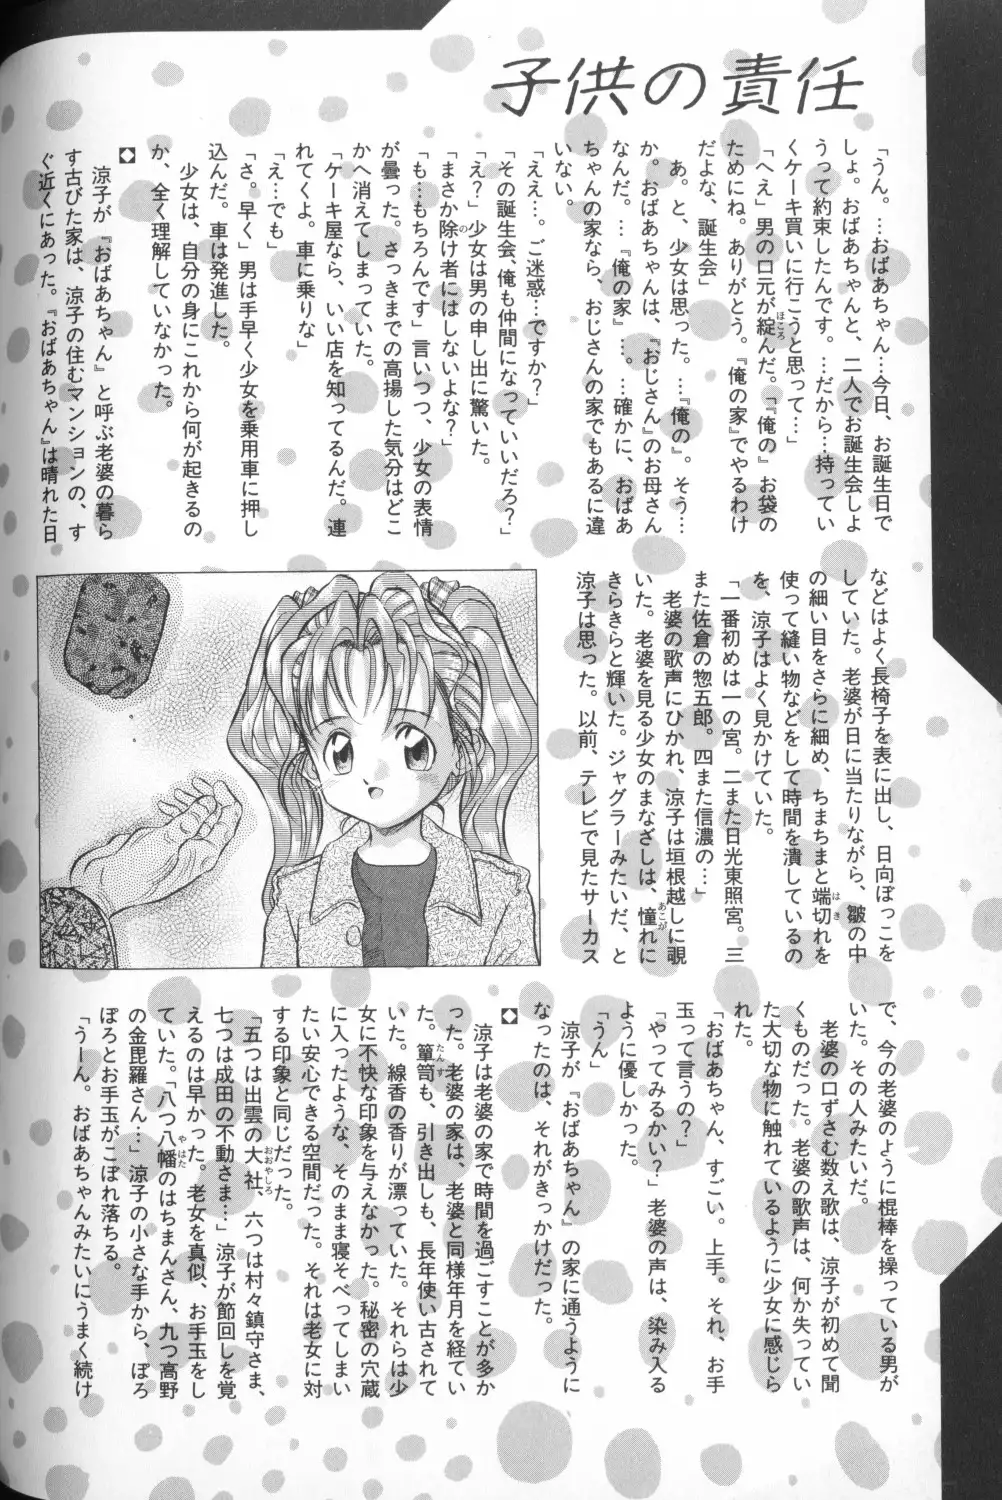 子供の責任
「うん。…おばあちゃん…今日、お誕生日で
しょ。おばあちゃんと、二人でお誕生会しよ
うって約束したんです。…だから…持ってい
くケーキ買いに行こうと思って…」
「へえ」男の口元が綻んだ。「『俺の』お袋の
ためにね。ありがとう。『俺の家』でやるわけ
だよな、誕生会」
あ。と、少女は思った。…『俺の』。そう…
か。おばあちゃんは、『おじさん』のお母さん
なんだ。…『俺の家』…。…確かに、おばあ
ちゃんの家なら、おじさんの家でもあるに違
いない。
「ええ…。ご迷惑…ですか?」
「その誕生会、俺も仲間になっていいだろ?」
「え?」少女は男の申し出に驚いた。
「まさか除け者にはしないよな?」
「も…もちろんです」言いつつ、少女の表情
が曇った。さっきまでの高揚した気分はどこ
かへ消えてしまっていた。
「ケーキ屋なら、いい店を知ってるんだ。連
れてくよ。車に乗りな」
「え…でも」
「さ。早く」男は手早く少女を乗用車に押し
込んだ。車は発進した。
少女は、自分の身にこれから何が起きるの
か、全く理解していなかった。
◆
涼子が『おばあちゃん』と呼ぶ老婆の暮ら
す古びた家は、涼子の住むマンションの、す
ぐ近くにあった。『おばあちゃん』は晴れた日
などはよく長椅子を表に出し、日向ぼっこを
していた。老婆が日に当たりながら、皺の中
の細い目をさらに細め、ちまちまと端切れを
使って縫い物などをして時間を潰しているの
を、涼子はよく見かけていた。
「一番初めは一の宮。二また日光東照宮。三
また佐倉の惣五郎。四また信濃の…」
老婆の歌声にひかれ、涼子は垣根越しに覗
いた。老婆を見る少女のまなざしは、憧れに
きらきらと輝いた。ジャグラーみたいだ、と
涼子は思った。以前、テレビで見たサーカス
で、今の老婆のように棍棒を操っている男が
いた。その人みたいだ。
老婆の口ずさむ数え歌は、涼子が初めて聞
くものだった。老婆の歌声は、何か失ってい
た大切な物に触れているように少女に感じら
れた。
「おばあちゃん、すごい。上手。それ、お手
玉って言うの?」
「やってみるかい?」老婆の声は、染み入る
ように優しかった。
「うん」
涼子が『おばあちゃん』の家に通うように
なったのは、それがきっかけだった。
◆
涼子は老婆の家で時間を過ごすことが多か
った。老婆の家は、老婆と同様年月を経てい
た。箪笥も、引き出しも、長年使い古されて
いた。線香の香りが漂っていた。それらは少
女に不快な印象を与えなかった。秘密の穴蔵
に入ったような、そのまま寝そべってしまい
たい安心できる空間だった。それは老女に対
する印象と同じだった。
「五つは出雲の大社、六つは村々鎮守さま、
七つは成田の不動さま…」涼子が節回しを覚
えるのは早かった。老女を真似、お手玉をし
ていた。「八つ八幡のはちまんさん、九つ高野
の金毘羅さん…」涼子の小さな手から、ぽろ
ぽろとお手玉がこぼれ落ちる。
「うーん。おばあちゃんみたいにうまく続け